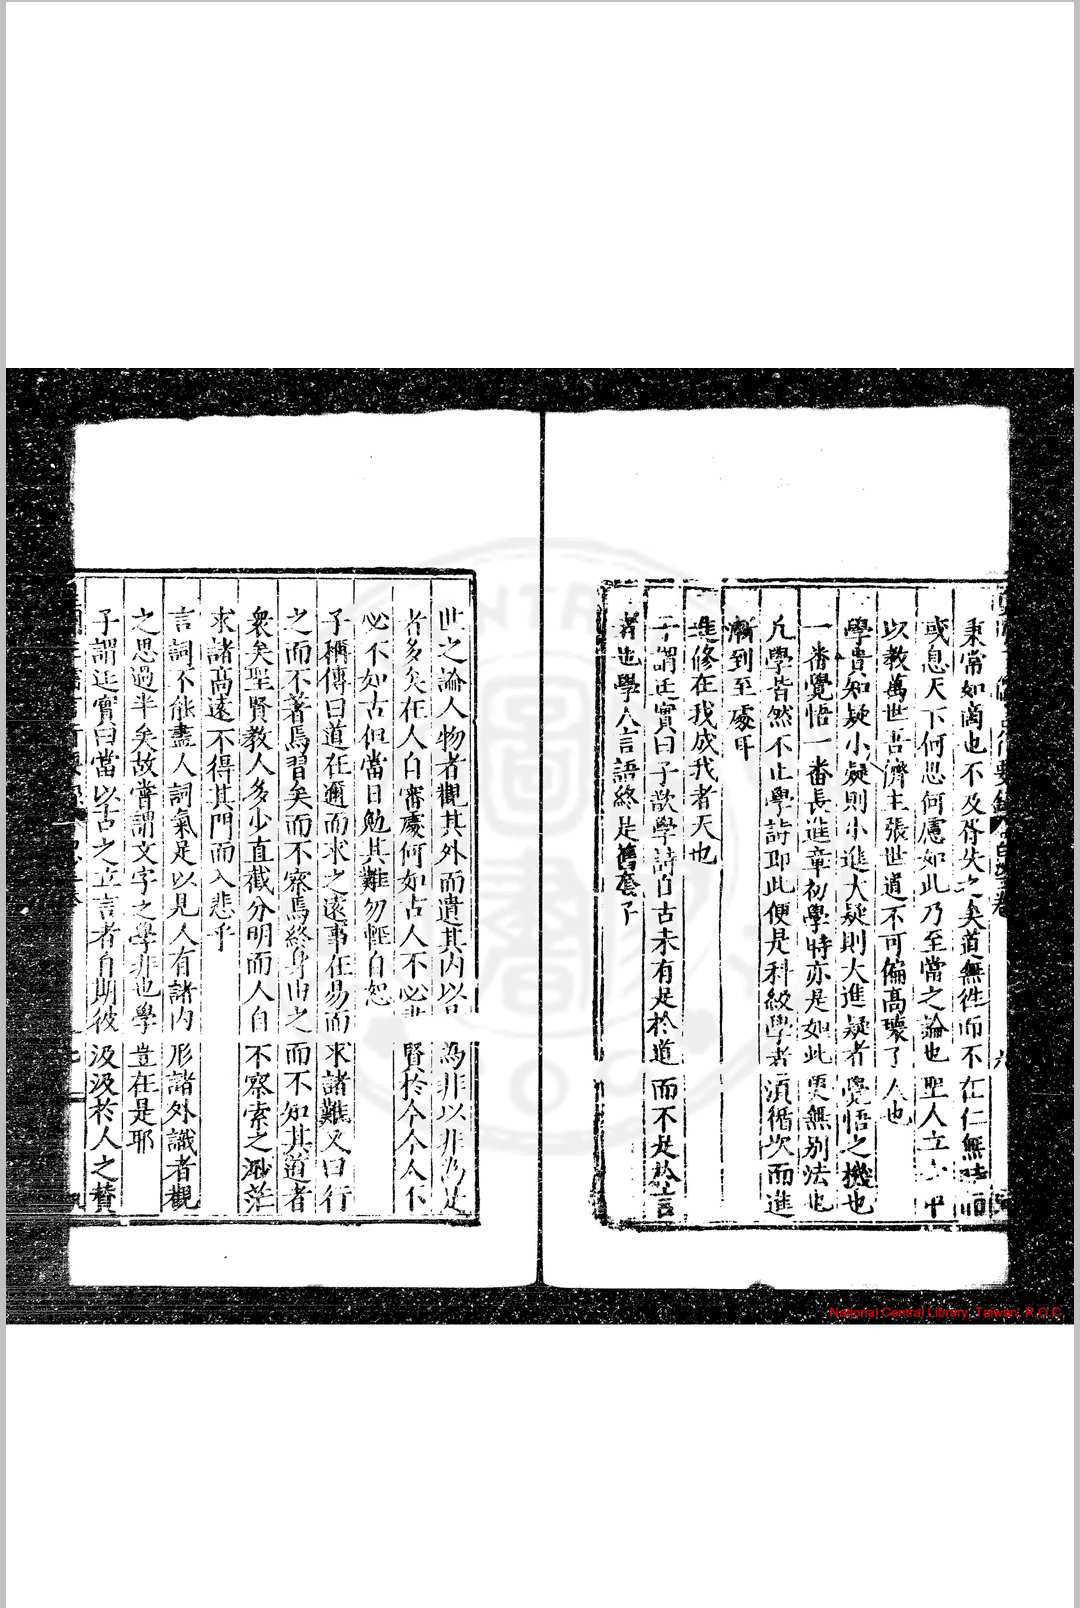 秉常如啇也不及胥失之矣道無徃而不在仁無
或息天下何思何慮如此乃至當之論也聖人立
以教萬世吾儕主張世道不可偏髙壞了人也
學貴知疑小疑則小進大疑則大進疑者覺悟之機也
一番覺悟一番長進章初學時亦是如此更無别法也
凢學皆然不止學詩即此便是科級學者湏循次而進
漸到至處耳
進修在我成我者天也
子謂廷實曰子欲學詩自古未有足於道而不足於言
者也學人言語終是舊套子
世之論人物者觀其外而遺其内以是為非以非為是
者多矣在人自審處何如古人不必盡賢於今今人不
必不如古但當日勉其難勿輕自恕
子稱傳曰道在邇而求之遠事在易而求諸難又曰行
之而不著焉習矣而不察焉終身由之而不知其道者
衆矣聖賢教人多少直截分明而人自不察索之渺茫
求諸髙遠不得其門而入悲乎
言詞不能盡人詞氣足以見人有諸内形諸外識者觀
之思過半矣故嘗謂文字之學非也學豈在是耶
子謂廷實曰當以古之立言者自期彼汲汲於人之賛
National Central Library, Taiwan, R.O.C.